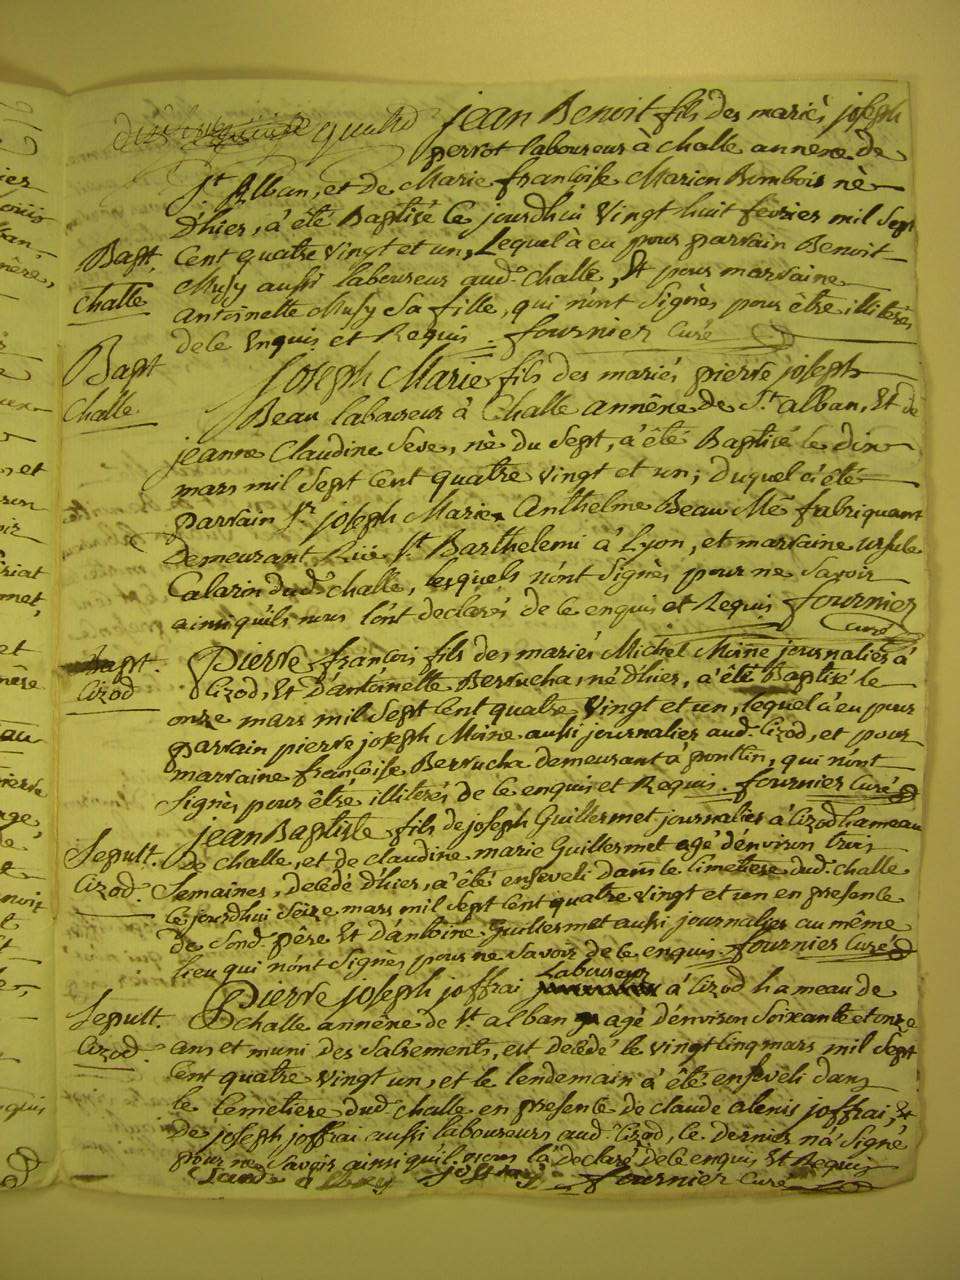 quatre Jean Benoit fils des mariés joseph
perrot laboureur à challe annéxe de
St. Alban, et de Marie françoise Marion Bombois né
d'hier, à été Baptisé le jourdhui vingt huit février mil Sept
Bapt. Cent quatre vingt et un, Lequel à eu pour parrain Benoit
challe Musy aussi laboureur aud. challe, Et pour marraine
Antoinette Musy Sa fille, qui n'ont Signés pour être illiterés
de ce Enquis et Requis fournier Curé
Bapt Joseph Marie fils des mariés pierre joseph
challe. Beau laboureur à Challe annéxe de St. alban, Et de
jeanne Claudine Seve, né du Sept, à été Baptisé le dix
mars mil Sept Cent quatre vingt et un; duquel à été
parrain Sr. joseph Marie Anthelme Beau Md fabriquant
demeurant Rüe St. Barthelemi à Lyon, et marraine ursule
Calarin dud. challe, lesquels n'ont Signés pour ne Savoir
ainsi qu'ils nous l'ont declarés de ce enquis et Requis fournier
curé
Bapt. Pierre françois fils des mariés Michel Moine journalier à
Cizod Cizod, Et D'antoinette Berrucha, né d'hier, a été Baptisé le
onze mars mil Sept Cent quatre Vingt et un, lequel à eu pour
parrain pierre joseph Moine aussi journalier aud. Cizod, et pour
marraine françoise Berrucha demeurant à pontlin, qui n'ont
Signés pour être illiterés de ce enquis et Requis. fournier Curé
Jean Baptiste fils de joseph Guillermet journalier à Cizod hameau
Sepult. de challe, et de claudine marie Guillermet agé d'environ trois
Cizod. Semaines, decédé d'hier, a été enseveli dans le Cimetiere dud. challe
Cejourdhui Seize mars mil Sept Cent quatre vingt et un en presence
de Sond. père Et D'antoine Guillermet aussi journalier au même
lieu qui n'ont Signes pour ne Savoir de ce enquis. fournier Curé
Pierre joseph joffrai Laboureur à Cizod hameau de
Sepult. challe annéxe de St. alban agé d'environ Soixante et onze
Cizod. ans et muni des Sacrements, est decédé le vingt cinq mars mil Sept
Cent quatre vingt un, et le lendemain à été enseveli dans
le Cemetiere dud. challe en presence de claude alexis joffrai, Et
de joseph joffrai aussi laboureurs aud. Cizod, le dernier n'a Signé
pour ne Savoir ainsi qu'il nous l'a declaré de ce enquis Et Requis
Claude alexy joffray fournier Curé